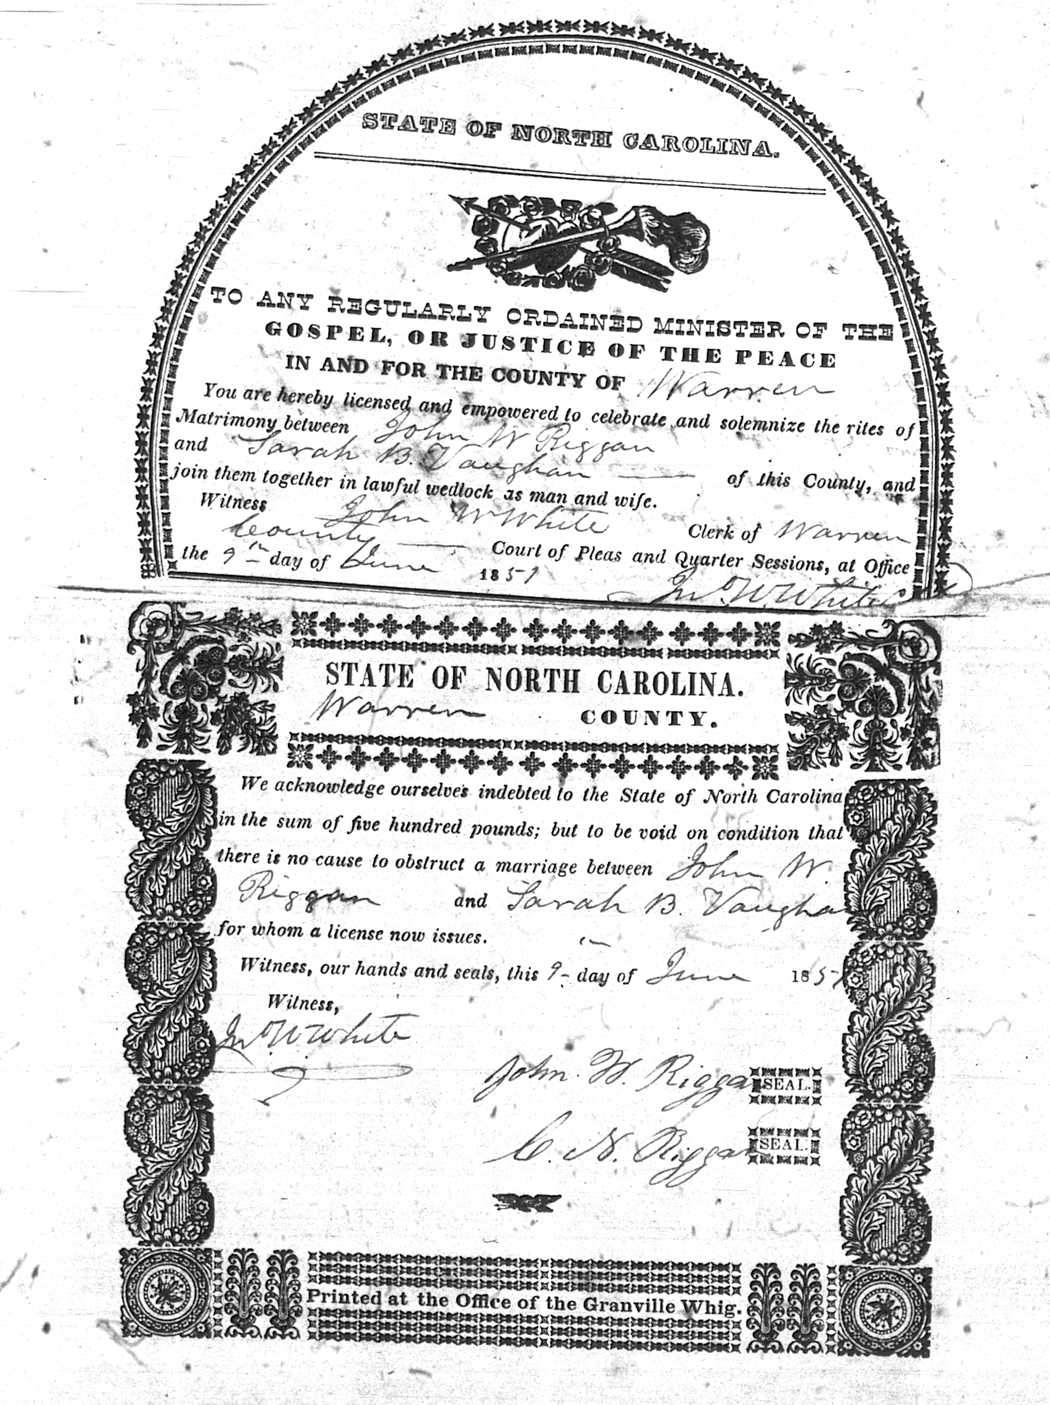 STATE OF NORTH CAROLINA.
TO ANY REGULARLY ORDAINED MINISTER OF THE
GOSPEL, OR JUSTICE OF THE PEACE
IN AND FOR THE COUNTY OF Warren
You are hereby licensed and empowered to celebrate and solemnize the rites of
Matrimony between John W Riggan
and Sarah B. Vaughan of this County, and
join them together in lawful wedlock as man and wife.
Witness John W White Clerk of Warren
County Court of Pleas and Quarter Sessions, at Office
the 9th day of June 1857
Jno W. White
STATE OF NORTH CAROLINA.
Warren COUNTY.
We acknowledge ourselves indebted to the State of North Carolina
in the sum of five hundred pounds; but to be void on condition that
there is no cause to obstruct a marriage between John W.
Riggan and Sarah B. Vaughan
for whom a license now issues.
Witness, our hands and seals, this 9th day of June 1857
Witness,
Jno W White
John. W. Riggan SEAL.
C. N. Riggan SEAL.
Printed at the Office of the Granville Whig.